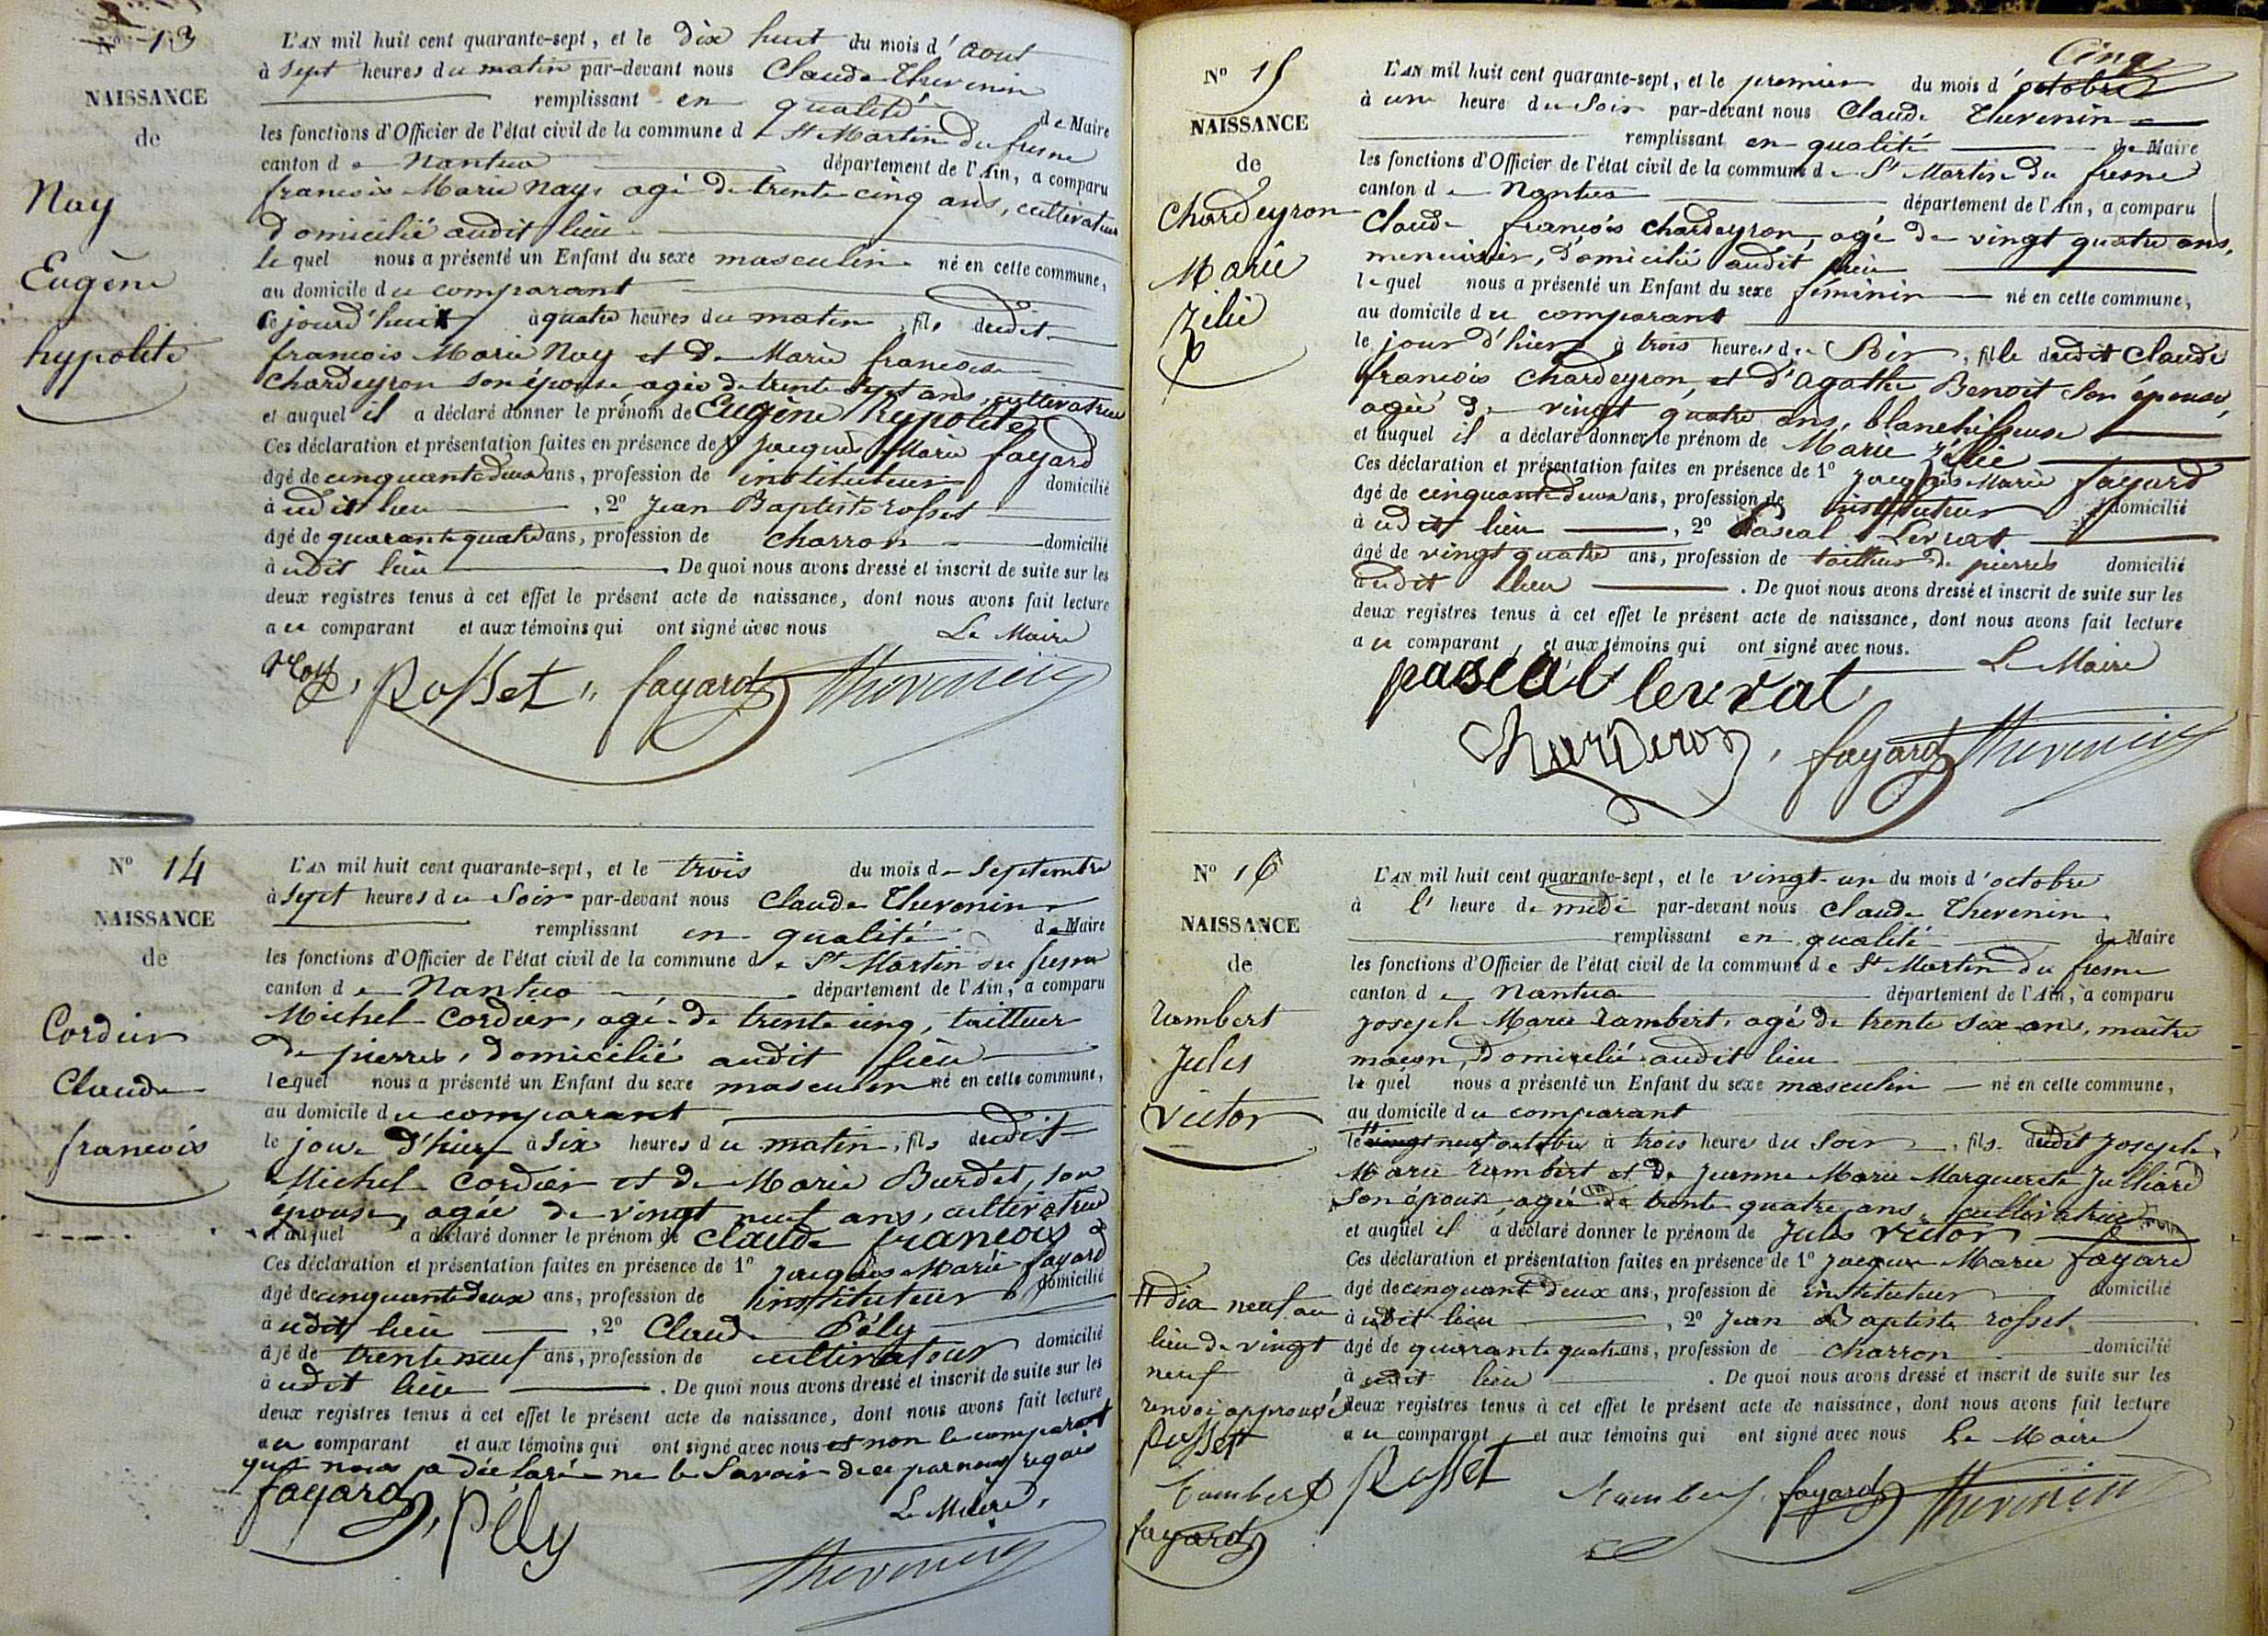 N° 13
NAISSANCE
de
Nay
Eugène
hypolite
L'AN mil huit cent quarante-sept, et le dix huit du mois d'aout
à sept heures du matin par-devant nous Claude Thevenin
remplissant en qualité de Maire
les fonctions d'Officier de l'état civil de la commune de St Martin du fresne
canton de Nantua département de l'Ain, a comparu
francois Marie Nay, agé de trente cinq ans, cultivateur
domicilié audit lieu
lequel nous a présenté un Enfant du sexe masculin né en cette commune,
au domicile du comparant
ce jourd'huit à quatre heures du matin, fils dudit
francois Marie Nay et de Marie francoise
Chardeyron son épouse, agée de trente sept ans, cultivatrice
et auquel il a déclaré donner le prénom de Eugène hypolite
Ces déclaration et présentation faites en présence de 1° Jacques Marie fayard
âgé de cinquante deux ans, profession de instituteur domicilié
audit lieu, 2° Jean Baptiste rosset
âgé de quarante quatre ans, profession de charron domicilié
audit lieu. De quoi nous avons dressé et inscrit de suite sur les
deux registres tenus à cet effet le présent acte de naissance, dont nous avons fait lecture
au comparant et aux témoins qui ont signé avec nous Le Maire
Nay, Rosset, fayard Thevenin
N° 14
NAISSANCE
de
Cordier
Claude
francois
L'AN mil huit cent quarante-sept, et le trois du mois de Septembre
à sept heures du Soir par-devant nous Claude Thevenin
remplissant en qualité de Maire
les fonctions d'Officier de l'état civil de la commune de St Martin du fresne
canton de Nantua département de l'Ain, a comparu
Michel Cordier, agé de trente cinq, tailleur
de pierres, domicilié audit lieu
lequel nous a présenté un Enfant du sexe masculin né en cette commune,
au domicile du comparant
le jour d'hier à six heures du matin, fils dudit
Michel Cordier et de Marie Burdet, son
épouse, agée de vingt neuf ans, cultivatrice
et auquel a déclaré donner le prénom de Claude francois
Ces déclaration et présentation faites en présence de 1° Jacques Marie fayard
âgé de cinquante deux ans, profession de instituteur domicilié
audit lieu, 2° Claude Pély
âgé de trente neuf ans, profession de cultivateur domicilié
audit lieu. De quoi nous avons dressé et inscrit de suite sur les
deux registres tenus à cet effet le présent acte de naissance, dont nous avons fait lecture
au comparant et aux témoins qui ont signé avec nous et non le comparant
qui nous a déclaré ne le Savoir de ce par nous requis
fayard, Pély Le Maire,
Thevenin
Cinq
N° 15
NAISSANCE
de
Chardeyron
Marie
Zélie
L'AN mil huit cent quarante-sept, et le premier du mois d'octobre
à une heure du Soir par-devant nous Claude Thevenin
remplissant en qualité de Maire
les fonctions d'Officier de l'état civil de la commune de St Martin du fresne
canton de Nantua département de l'Ain, a comparu
Claude francois Chardeyron, agé de vingt quatre ans,
menuisier, domicilié audit lieu
lequel nous a présenté un Enfant du sexe féminin né en cette commune,
au domicile du comparant
le jour d'hier à trois heures du Soir, fille dudit Claude
francois Chardeyron, et d'Agathe Benoit son épouse,
agée de vingt quatre ans, blanchisseuse
et auquel il a déclaré donner le prénom de Marie Zélie
Ces déclaration et présentation faites en présence de 1° Jacques Marie fayard
âgé de cinquante deux ans, profession de instituteur domicilié
audit lieu, 2° Pascal Levrat
âgé de vingt quatre ans, profession de tailleur de pierres domicilié
audit lieu. De quoi nous avons dressé et inscrit de suite sur les
deux registres tenus à cet effet le présent acte de naissance, dont nous avons fait lecture
au comparant, et aux témoins qui ont signé avec nous.
Le Maire
pascal levrat
Charderon, fayard Thevenin
N° 16
NAISSANCE
de
Rambert
Jules
Victor
L'AN mil huit cent quarante-sept, et le vingt-un du mois d'octobre
à l'heure de midi par-devant nous Claude Thevenin
remplissant en qualité de Maire
les fonctions d'Officier de l'état civil de la commune de St Martin du fresne
canton de Nantua département de l'Ain, a comparu
Joseph Marie Rambert, agé de trente six ans, maître
macon, domicilié audit lieu
lequel nous a présenté un Enfant du sexe masculin né en cette commune,
au domicile du comparant
le vingt neuf octobre à trois heures du Soir, fils dudit Joseph
Marie Rambert et de Jeanne Marie Marguerite Julliard
son épouse, agée de trente quatre ans, cultivatrice
et auquel il a déclaré donner le prénom de Jules Victor
Ces déclaration et présentation faites en présence de 1° Jacques Marie fayard
âgé de cinquante deux ans, profession de instituteur domicilié
audit lieu, 2° Jean Baptiste rosset
âgé de quarante quatre ans, profession de charron domicilié
audit lieu. De quoi nous avons dressé et inscrit de suite sur les
deux registres tenus à cet effet le présent acte de naissance, dont nous avons fait lecture
au comparant, et aux témoins qui ont signé avec nous Le Maire
Rosset Rambert, fayard Thevenin
dix neuf au
lieu de vingt
neuf
renvoi approuvé
Rosset
Rambert
fayard